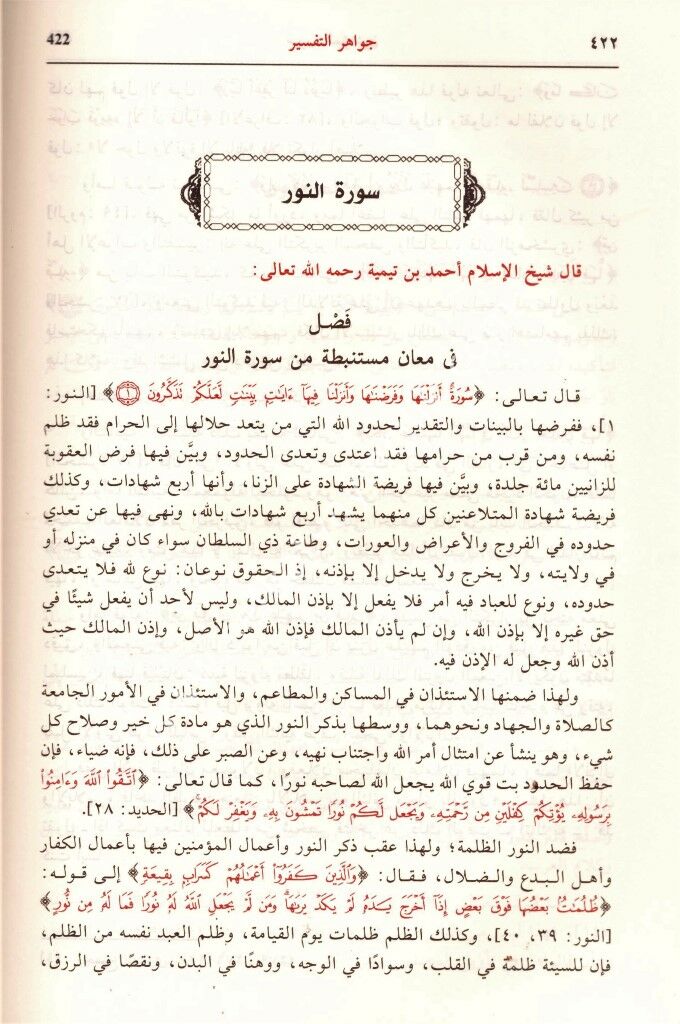 ٤٢٢ جواهر التفسير 422
سورة النور
قال شيخ الإسلام أحمد بن تيمية رحمه الله تعالى:
فَصْل
في معان مستنبطة من سورة النور
قال تعالى: ﴿سُورَةٌ أَنزَلْنَٰهَا وَفَرَضْنَٰهَا وَأَنزَلْنَا فِيهَآ ءَايَٰتٍۭ بَيِّنَٰتٍ لَّعَلَّكُمْ تَذَكَّرُونَ ١﴾ [النور:
١]، ففرضها بالبينات والتقدير لحدود الله التي من يتعد حلالها إلى الحرام فقد ظلم
نفسه، ومن قرب من حرامها فقد اعتدى وتعدى الحدود، وبيَّن فيها فرض العقوبة
للزانيين مائة جلدة، وبيَّن فيها فريضة الشهادة على الزنا، وأنها أربع شهادات، وكذلك
فريضة شهادة المتلاعنين كل منهما يشهد أربع شهادات بالله، ونهى فيها عن تعدي
حدوده في الفروج والأعراض والعورات، وطاعة ذي السلطان سواء كان في منزله أو
في ولايته، ولا يخرج ولا يدخل إلا بإذنه، إذ الحقوق نوعان: نوع لله فلا يتعدى
حدوده، ونوع للعباد فيه أمر فلا يفعل إلا بإذن المالك، وليس لأحد أن يفعل شيئًا في
حق غيره إلا بإذن الله، وإن لم يأذن المالك فإذن الله هو الأصل، وإذن المالك حيث
أذن الله وجعل له الإذن فيه.
ولهذا ضمنها الاستئذان في المساكن والمطاعم، والاستئذان في الأمور الجامعة
كالصلاة والجهاد ونحوهما، ووسطها بذكر النور الذي هو مادة كل خير وصلاح كل
شيء، وهو ينشأ عن امتثال أمر الله واجتناب نهيه، وعن الصبر على ذلك، فإنه ضياء، فإن
حفظ الحدود بت قوي الله يجعل الله لصاحبه نورًا، كما قال تعالى: ﴿ٱتَّقُوا۟ ٱللَّهَ وَءَامِنُوا۟
بِرَسُولِهِۦ يُؤْتِكُمْ كِفْلَيْنِ مِن رَّحْمَتِهِۦ وَيَجْعَل لَّكُمْ نُورًا تَمْشُونَ بِهِۦ وَيَغْفِرْ لَكُمْ﴾ [الحديد: ٢٨].
فضد النور الظلمة؛ ولهذا عقب ذكر النور وأعمال المؤمنين فيها بأعمال الكفار
وأهل البدع والضلال، فقال: ﴿وَٱلَّذِينَ كَفَرُوٓا۟ أَعْمَٰلُهُمْ كَسَرَابٍۭ بِقِيعَةٍ﴾ إلى قوله:
﴿ظُلُمَٰتٌۢ بَعْضُهَا فَوْقَ بَعْضٍ إِذَآ أَخْرَجَ يَدَهُۥ لَمْ يَكَدْ يَرَىٰهَا وَمَن لَّمْ يَجْعَلِ ٱللَّهُ لَهُۥ نُورًا فَمَا لَهُۥ مِن نُّورٍ﴾
[النور: ٣٩، ٤٠]، وكذلك الظلم ظلمات يوم القيامة، وظلم العبد نفسه من الظلم،
فإن للسيئة ظلمة في القلب، وسوادًا في الوجه، ووهنًا في البدن، ونقصًا في الرزق،